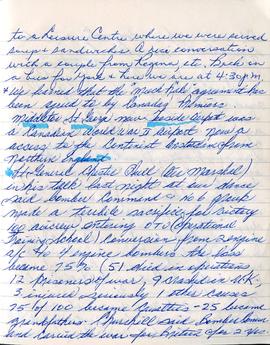 to a Leisure Centre, where we were served
soup & sandwiches. A nice conversation
with a couple from Regina, etc. Back in
a bus for York & here we are at 4:30 p.m.
We learned that the "Meech Lake" agreement has
been signed by the Canadian Premiers.
Middleton St George near airport was
a Canadian World War II airport now a
access to the
Northern England
Lt-General Chester Hull (Air Marshal)
in his talk last night at our dance
said Bomber Command & no 6 group
made a terrible sacrifice for victory
100 aircrew entering OTU (Operational
Training School) Conversion from 2 engine
a/c to 4 engine bombers the loss
became 75% (51 died in operations
12 prisoners of war, 9 crashed in U.K.
3 injured seriously 1 other causes
75 of 100 became casualties - 25 became
grandfathers. Churchill said Bomber Command
carried the war for Britain for 2 yrs.